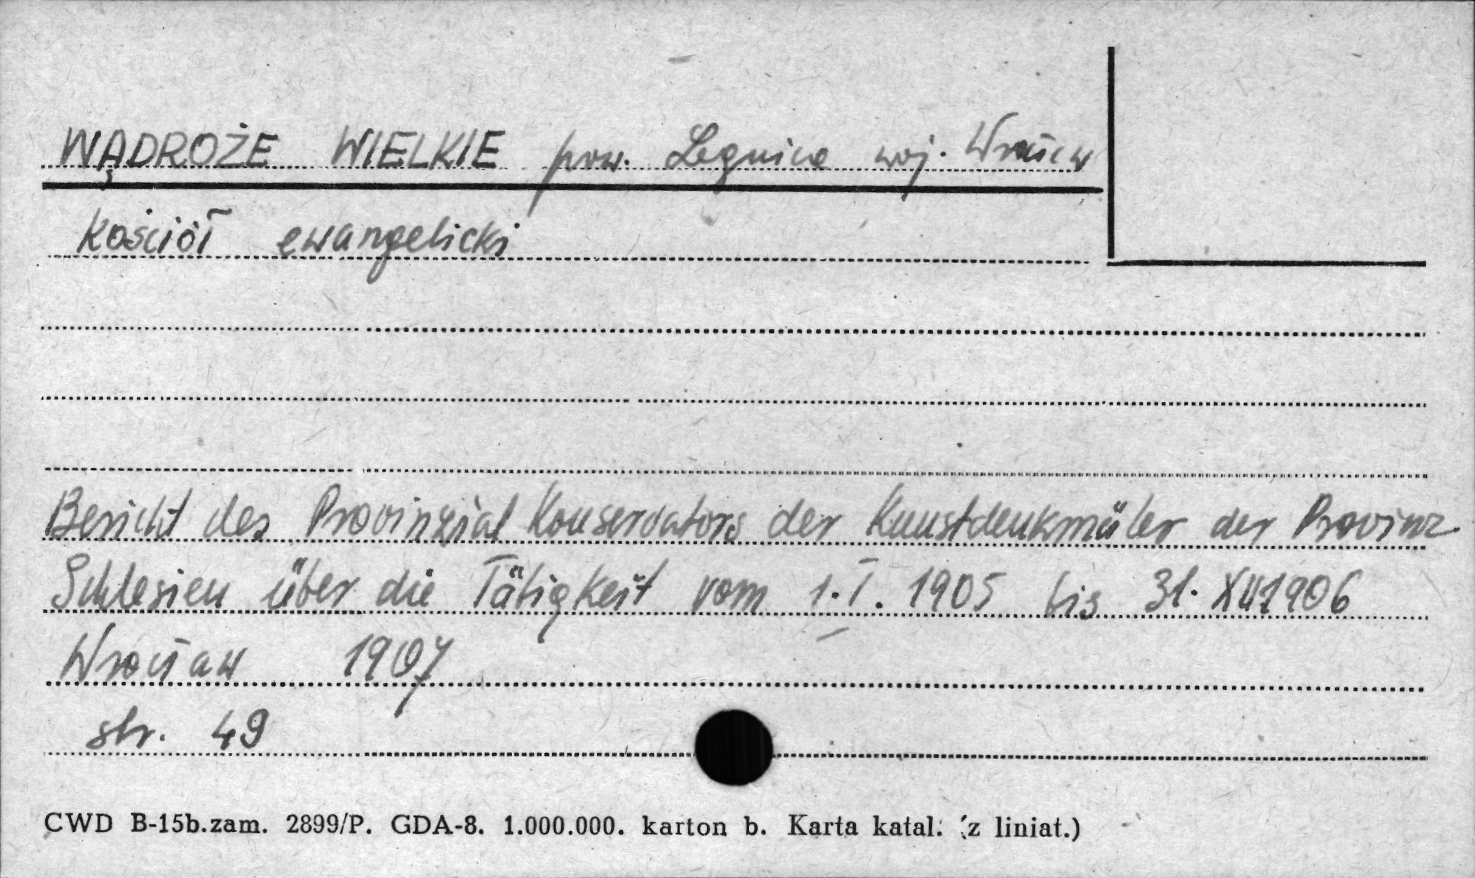 WĄDROŻE WIELKIE pow. Legnica woj. Wrocław
Kościół ewangelicki
Bericht des Provinzial Konservators der Kunstdenkmäler der Provinz
Schlesien über die Tätigkeit vom 1.I. 1905 bis 31. XII 1906
Wrocław 1907
str. 49
CWD B-15b.zam. 2899/P. GDA-8. 1.000.000. karton b. Karta katal. (z liniat.)